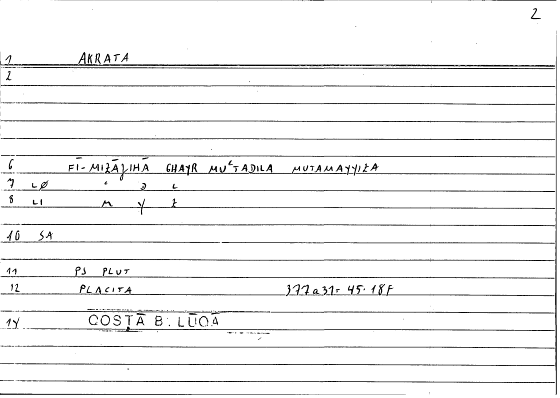 2
1 AKRATA
2
6 FĪ-MIZĀǦIHĀ GHAYR MUʿTADILA MUTAMAYYIZA
7 LØ ʿ D L
8 LI M Y Z
10 SA
11 PS PLUT
12 PLACITA 377a31= 45.18F
14 COSTĀ B. LŪQĀ